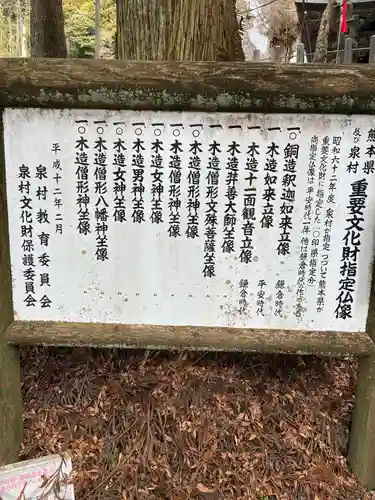 熊本県
及び
泉村 重要文化財指定仏像
昭和六十三年度 泉村が指定 つづいて熊本県が
重要文化財に指定した(○印県指定分)
尚指定仏像は 平安時代一体 他は鎌倉時代
一〇銅造釈迦如来立像 鎌倉時代
一 木造如来立像 平安時代
一 木造十一面観音立像 鎌倉時代
一 木造弁善大師坐像 〃
一〇木造僧形文殊菩薩坐像 〃
一〇木造僧形神坐像 〃
一〇木造僧形神坐像 〃
一〇木造女神坐像 〃
一〇木造男神坐像 〃
一〇木造女神坐像 〃
一 木造僧形八幡神坐像 〃
一 木造僧形神坐像 〃
平成十二年二月
泉村教育委員会
泉村文化財保護委員会